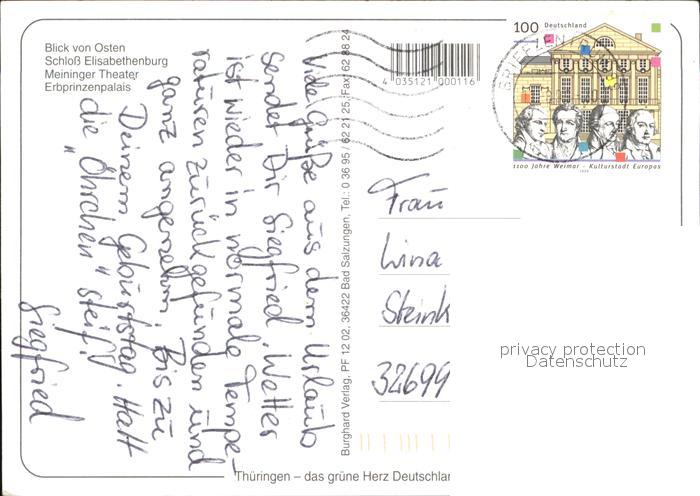 Blick von Osten
Schloß Elisabethenburg
Meininger Theater
Erbprinzenpalais
Viele Grüße aus dem Urlaub
sendet Dir Siegfried. Wetter
ist wieder in normale Tempe-
raturen zurückgefunden und
ganz angenehm. Bis zu
Deinem Geburtstag. Halt
die „Öhrchen" steif!
Siegfried
Burghard Verlag, PF 12 02, 36422 Bad Salzungen, Tel.: 0 36 95 / 62 21 25, Fax: 62 88 24
4 035121 000116
100 Deutschland
BRIEFZEN
1100 Jahre Weimar - Kulturstadt Europas
1999
Frau
Lina
Steink
32699
privacy protection
Datenschutz
Thüringen – das grüne Herz Deutschlan